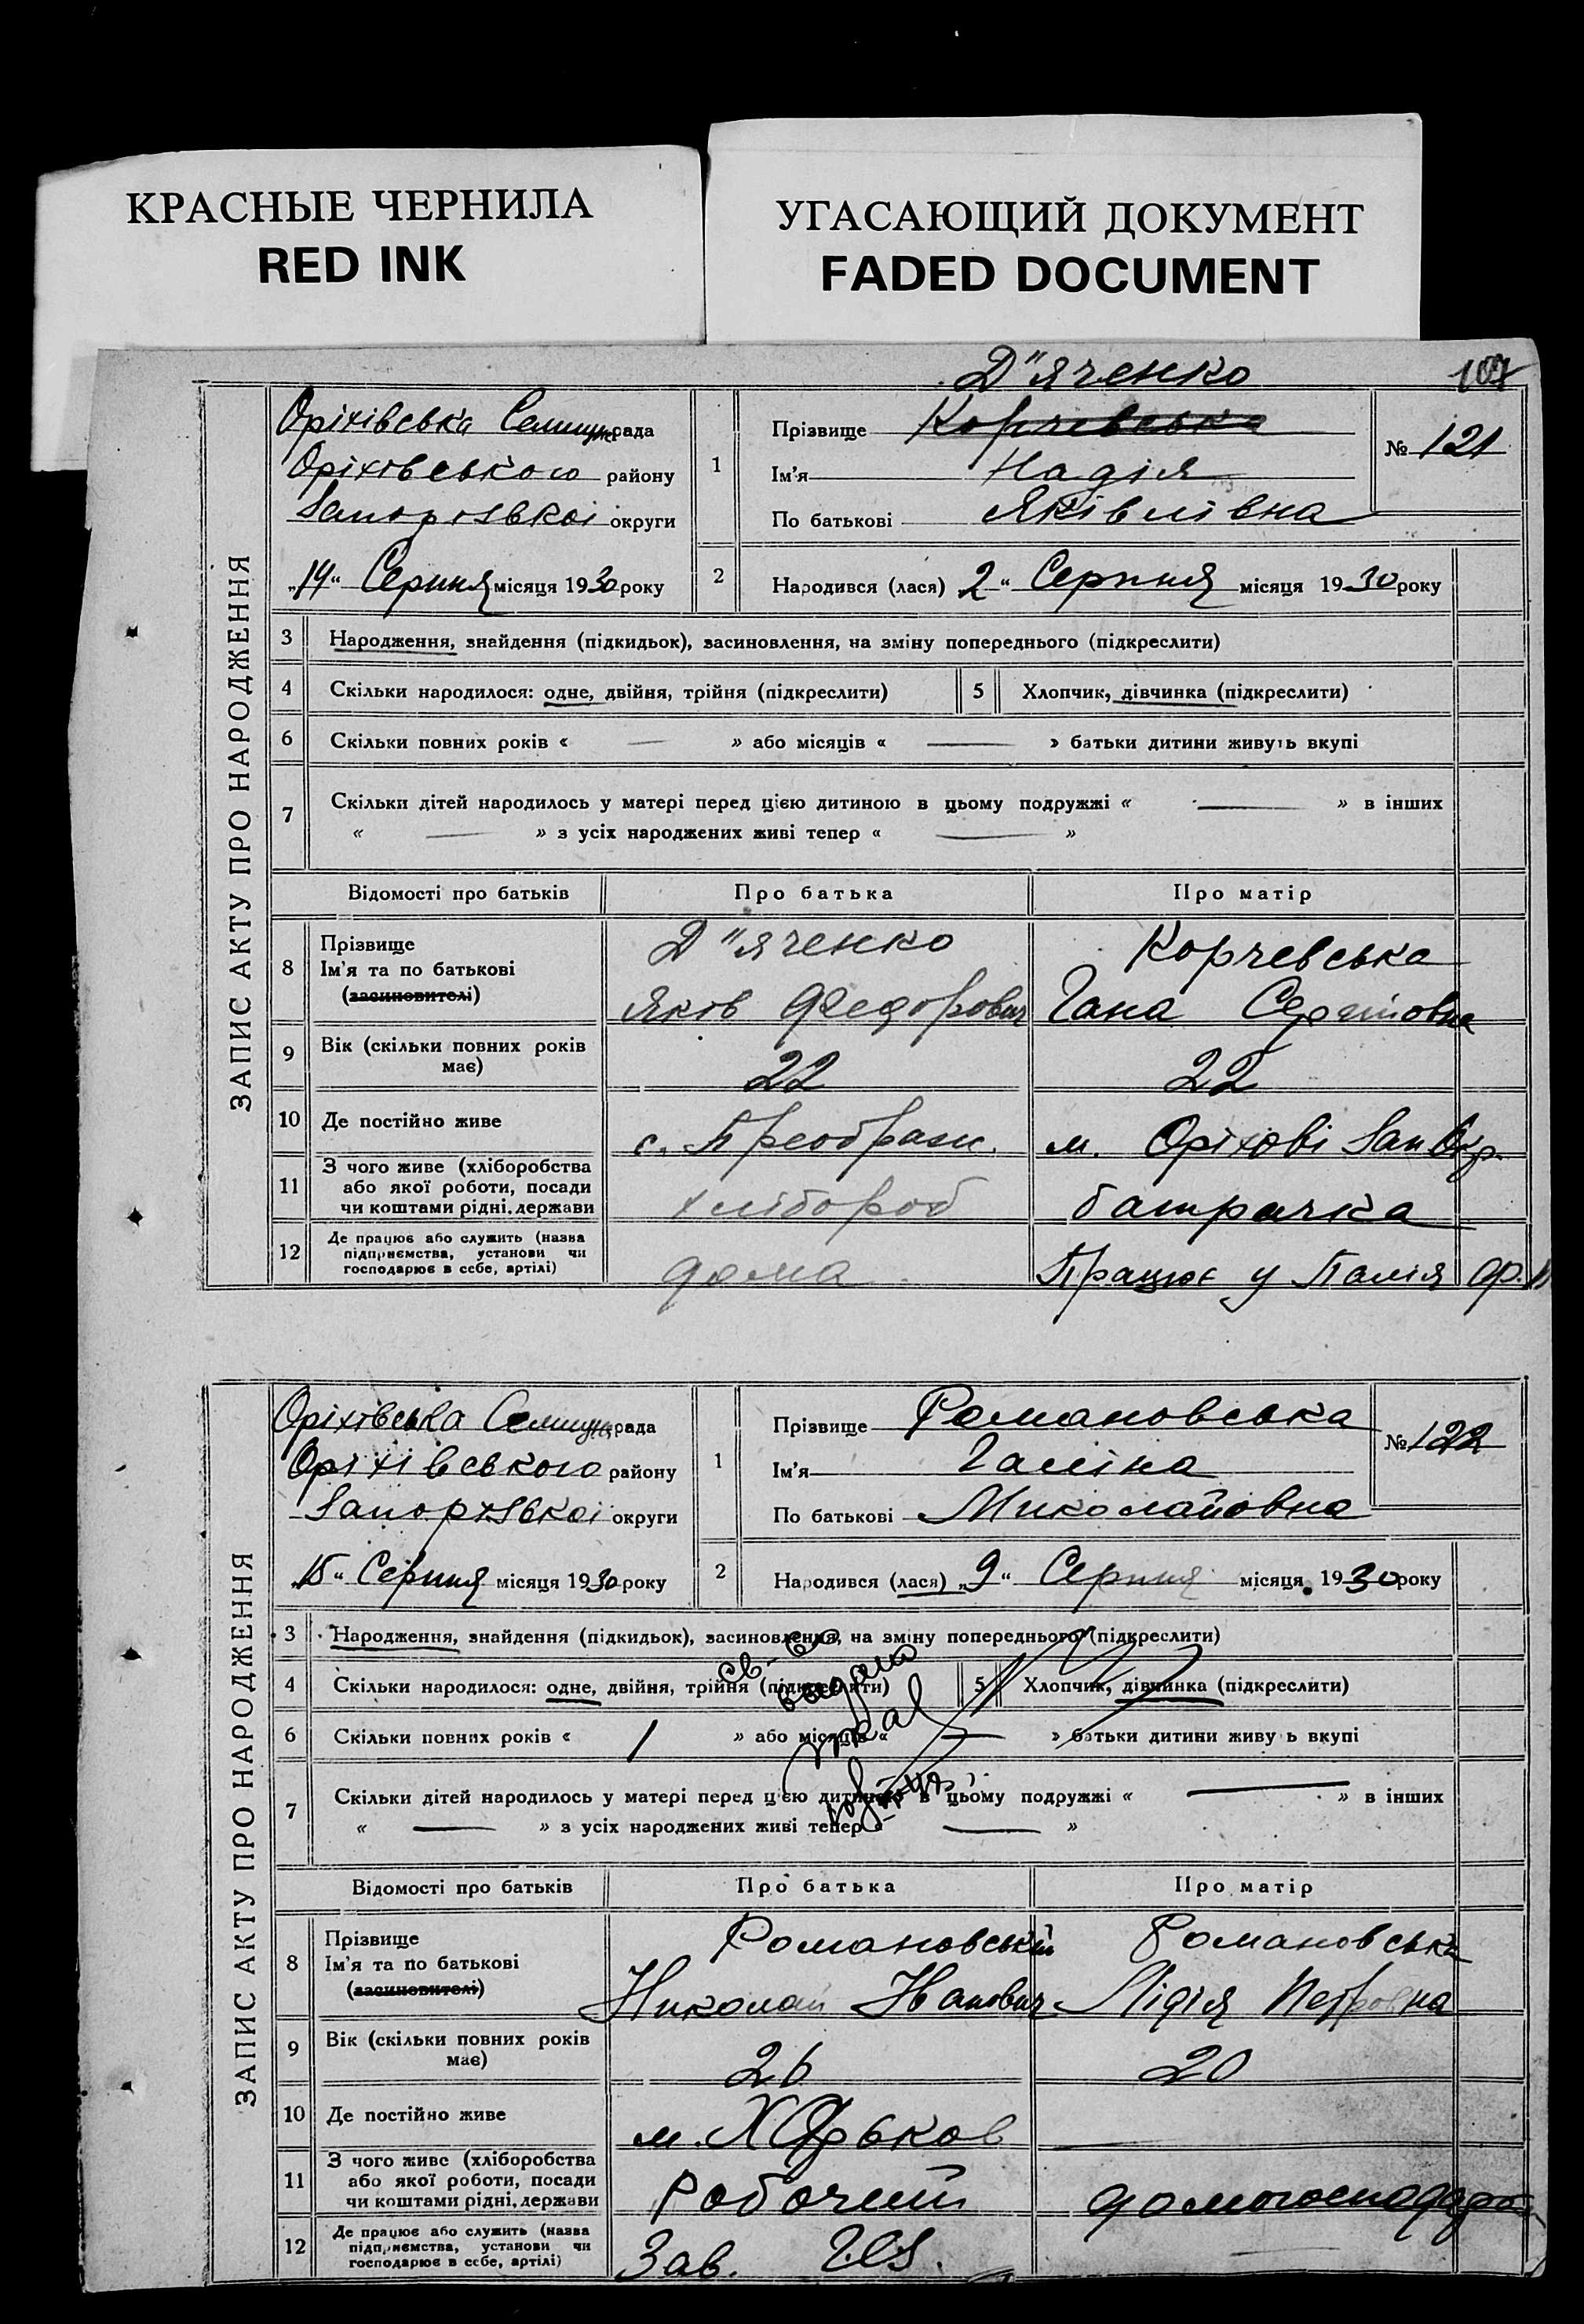 КРАСНЫЕ ЧЕРНИЛА
RED INK
УГАСАЮЩИЙ ДОКУМЕНТ
FADED DOCUMENT
107
ЗАПИС АКТУ ПРО НАРОДЖЕННЯ
Оріхівська Селищна рада
Оріхівського району
Запорізької округи
„14“ Серпня місяця 1930 року
Д"яченко
1 Прізвище Корчевська
Ім'я Надія
По батькові Яківлівна
№ 121
2 Народився (лася) 2“ Серпня місяця 1930 року
3 Народження, знайдення (підкидьок), засиновлення, на зміну попереднього (підкреслити)
4 Скільки народилося: одне, двійня, трійня (підкреслити) 5 Хлопчик, дівчинка (підкреслити)
6 Скільки повних років « — » або місяців « — » батьки дитини живуть вкупі
7 Скільки дітей народилось у матері перед цією дитиною в цьому подружжі « — » в інших
« — » з усіх народжених живі тепер « — »
Відомості про батьків Про батька Про матір
8 Прізвище Д"яченко Корчевська
Ім'я та по батькові Яків Федорович Гана
(засиновителі)
9 Вік (скільки повних років має) 22 22
10 Де постійно живе с. Преображ. м. Оріхові Зап Окр.
11 З чого живе (хліборобства або якої роботи, посади чи коштами рідні, держави хлібороб батрачка
12 Де працює або служить (назва підприємства, установи чи господарює в себе, артілі) дома Працює у Палія
ЗАПИС АКТУ ПРО НАРОДЖЕННЯ
Оріхівська Селищна рада
Оріхівського району
Запорізької округи
„15“ Серпня місяця 1930 року
1 Прізвище Романовська
Ім'я Галіна
По батькові Миколайовна
№ 122
2 Народився (лася) „9“ Серпня місяця 1930 року
3 Народження, знайдення (підкидьок), засиновлення, на зміну попереднього (підкреслити)
4 Скільки народилося: одне, двійня, трійня (підкреслити) 5 Хлопчик, дівчинка (підкреслити)
6 Скільки повних років « 1 » або місяців « — » батьки дитини живуть вкупі
7 Скільки дітей народилось у матері перед цією дитиною в цьому подружжі « — » в інших
« — » з усіх народжених живі тепер « — »
св-во
видано
Відомості про батьків Про батька Про матір
8 Прізвище Романовський Романовська
Ім'я та по батькові Николай Іванович Лідія Петровна
(засиновителі)
9 Вік (скільки повних років має) 26 20
10 Де постійно живе м. Харьков —
11 З чого живе (хліборобства або якої роботи, посади чи коштами рідні, держави Робочий
12 Де працює або служить (назва підприємства, установи чи господарює в себе, артілі) Зав. —